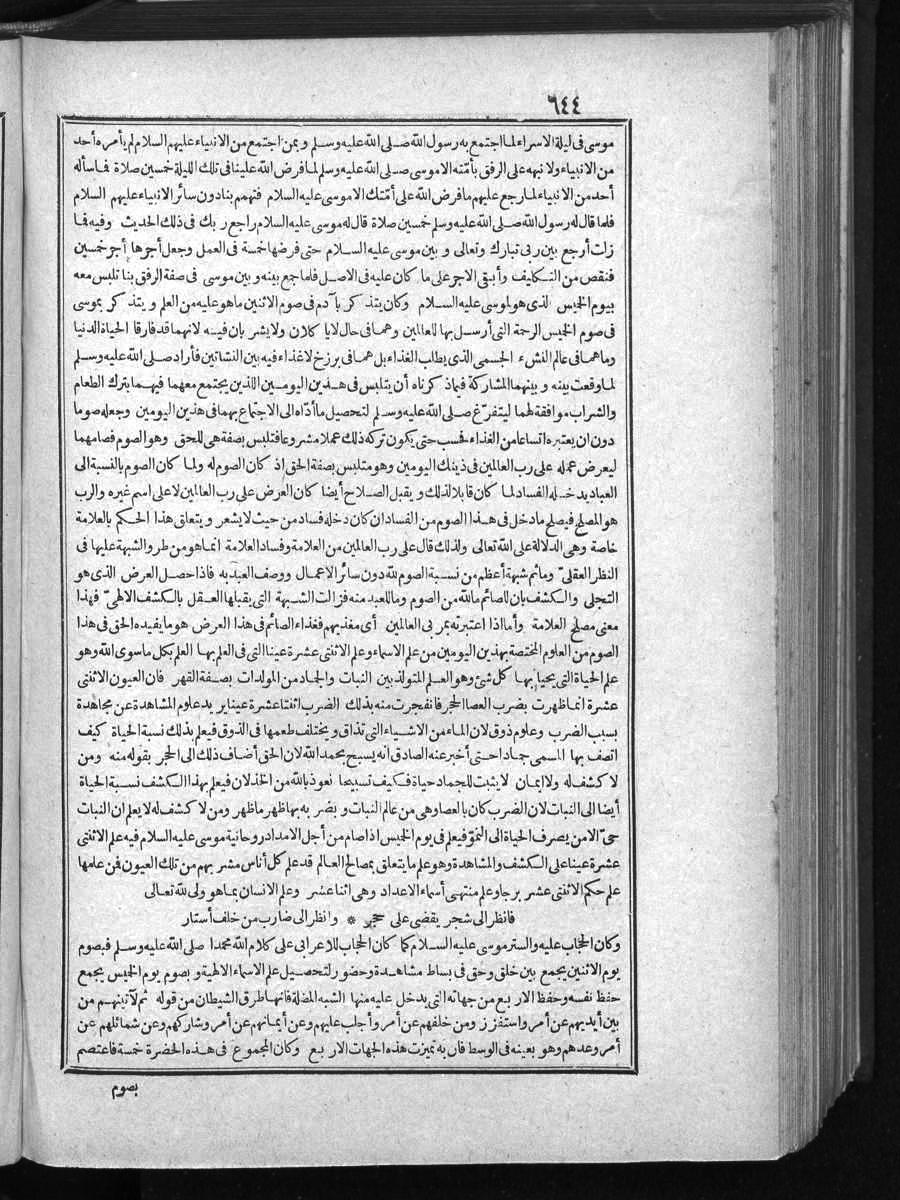 ٦٤٤
موسى فى ليلة الاسراء لما اجتمع به رسول الله صلى الله عليه وسلم وبمن اجتمع من الانبياء عليهم السلام لم يأمره أحد
من الانبياء ولا نبهه على الرفق بأمّته الا موسى صلى الله عليه وسلم لما فرض الله علينا فى تلك الليلة خمسين صلاة فما سأله
أحد من الانبياء لما رجع عليهم ما فرض الله على أمّتك الا موسى عليه السلام فتهمم بنا دون سائر الانبياء عليهم السلام
فلما قال له رسول الله صلى الله عليه وسلم خمسين صلاة قال له موسى عليه السلام راجع ربك فى ذلك الحديث وفيه فما
زلت أرجع بين ربى تبارك وتعالى وبين موسى عليه السلام حتى فرضها خمسة فى العمل وجعل أجرها أجر خمسين
فنقص من التكليف وأبقى الاجر على ما كان عليه فى الاصل فلما جمع بينه وبين موسى فى صفة الرفق بنا تلبس معه
بيوم الخميس الذى هو لموسى عليه السلام وكان يتذكر بآدم فى صوم الاثنين ما هو عليه من العلم ويتذكر بموسى
فى صوم الخميس الرحمة التى أرسل بها للعالمين وهما فى حال لا يأكلان ولا يشربان فيه لانهما قد فارقا الحياة الدنيا
وما هما فى عالم النشء الجسمى الذى يطلب الغذاء بل هما فى برزخ لا غذاء فيه بين النشأتين فأراد صلى الله عليه وسلم
لما وقعت بينه وبينهما المشاركة فيما ذكرناه أن يتلبس فى هذين اليومين اللذين يجتمع معهما فيهما بترك الطعام
والشراب موافقة لهما ليتفرّغ صلى الله عليه وسلم لتحصيل ما أدّاه الى الاجتماع بهما فى هذين اليومين وجعله صوما
دون ان يعتبره اتساعا من الغذاء فحسب حتى يكون تركه ذلك عملا مشروعا فتلبس بصفة هى للحق وهو الصوم فصامهما
ليعرض عمله على رب العالمين فى ذينك اليومين وهو متلبس بصفة الحق اذ كان الصوم له ولما كان الصوم بالنسبة الى
العباد يدخله الفساد لما كان قابلا لذلك ويقبل الصلاح أيضا كان العرض على رب العالمين لا على اسم غيره والرب
هو المصلح فيصلح ما دخل فى هذا الصوم من الفساد ان كان دخله فساد من حيث لا يشعر ويتعلق هذا الحكم بالعلامة
خاصة وهى الدلالة على الله تعالى ولذلك قال على رب العالمين من العلامة وفساد العلامة انما هو من طروّ الشبهة عليها فى
النظر العقلىّ وما ثم شبهة أعظم من نسبة الصوم لله دون سائر الاعمال ووصف العبد به فاذا حصل العرض الذى هو
التجلى والكشف بان للصائم ما لله من الصوم وما للعبد منه فزالت الشبهة التى يقبلها العقل بالكشف الالهىّ فهذا
معنى مصلح العلامة وأما اذا اعتبرته بمربى العالمين أى مغذيهم فغذاء الصائم فى هذا العرض هو ما يفيده الحق فى هذا
الصوم من العلوم المختصة بهذين اليومين من علم الاسماء وعلم الاثنتى عشرة عينا التى فى العلم بها العلم بكل ما سوى الله وهو
علم الحياة التى يحيا بها كل شئ وهو العلم المتولد بين النبات والجماد من المولدات بصفة القهر فان العيون الاثنتى
عشرة انما ظهرت بضرب العصا الحجر فانفجرت منه بذلك الضرب اثنتا عشرة عينا يريد علوم المشاهدة عن مجاهدة
بسبب الضرب وعلوم ذوق لان الماء من الاشياء التى تذاق ويختلف طعمها فى الذوق فيعلم بذلك نسبة الحياة كيف
اتصف بها المسمى جمادا حتى أخبر عنه الصادق انه يسبح بحمد الله لان الحق أضاف ذلك الى الحجر بقوله منه ومن
لا كشف له ولا ايمان لا يثبت للجماد حياة فكيف تسبيحا نعوذ بالله من الخذلان فيعلم بهذا الكشف نسبة الحياة
أيضا الى النبات لان الضرب كان بالعصا وهى من عالم النبات وبضربه بها ظهر ما ظهر ومن لا كشف له لا يعلم ان النبات
حىّ الا من يصرف الحياة الى النموّ فيعلم فى يوم الخميس اذا صام من أجل الامداد روحانية موسى عليه السلام فيه علم الاثنتى
عشرة عينا على الكشف والمشاهدة وهو علم ما يتعلق بمصالح العالم قد علم كل أناس مشربهم من تلك العيون فمن علمها
علم حكم الاثنى عشر برجا وعلم منتهى أسماء الاعداد وهى اثنا عشر وعلم الانسان بما هو ولى لله تعالى
فانظر الى شجر يقضى على حجر * وانظر الى ضارب من خلف أستار
وكان الحجاب عليه والستر موسى عليه السلام كما كان الحجاب للاعرابى على كلام الله محمدا صلى الله عليه وسلم فبصوم
يوم الاثنين يجمع بين خلق وحق فى بساط مشاهدة وحضور لتحصيل علم الاسماء الالهية وبصوم يوم الخميس يجمع
حفظ نفسه وحفظ الاربع من جهاته التى يدخل عليه منها الشبه المضلة فانها طرق الشيطان من قوله ثم لآتينهم من
بين أيديهم عن أمر واستفزز ومن خلفهم عن أمر وأجلب عليهم وعن أيمانهم عن أمر وشاركهم وعن شمائلهم عن
أمر وعدهم وهو بعينه فى الوسط فان به تميزت هذه الجهات الاربع وكان المجموع فى هذه الحضرة خمسة فاعتصم
بصوم